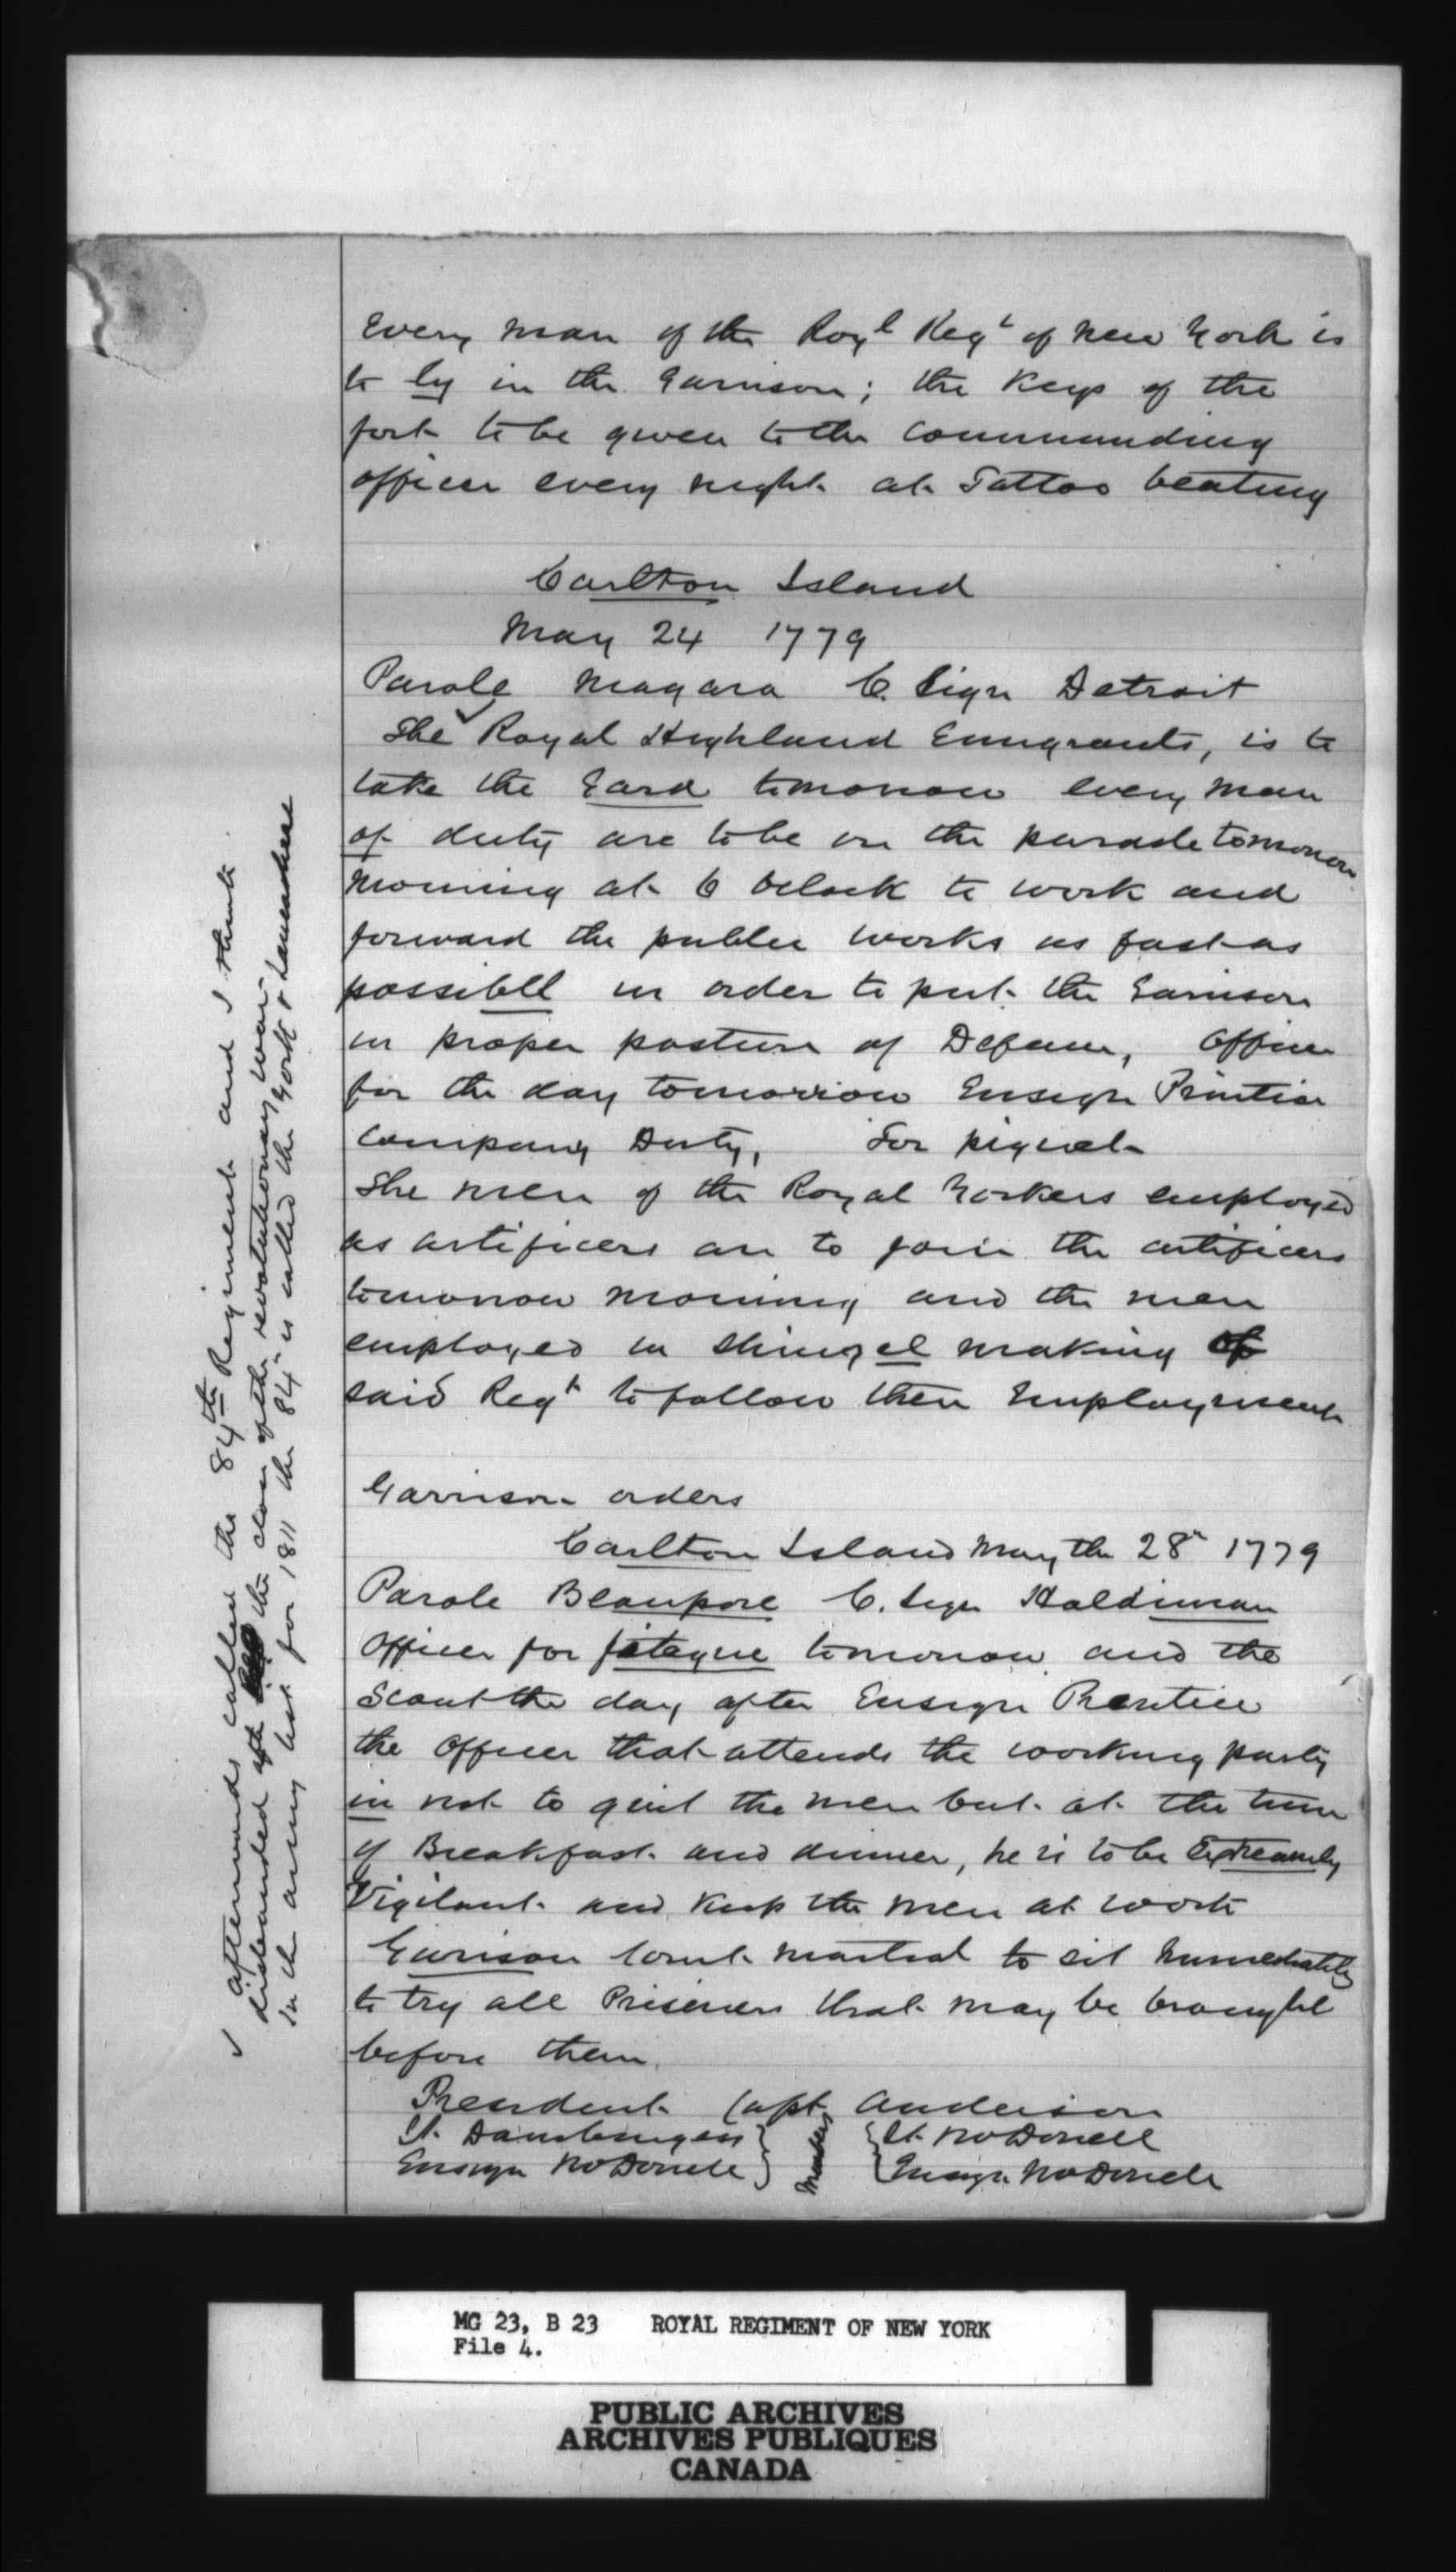 Every man of the Royl Regt of New York is
to ly in the Garrison; the Keys of the
fort to be given to the commanding
officer every night at Tattoo beating
Carlton Island
May 24 1779
Parole Niagara C. Sign Detroit
The Royal Highland Emigrants, is to
take the Gard tomorrow every man
of duty are to be on the parade tomorrow
morning at 6 oclock to work and
forward the public works as fast as
possibell in order to put the Garrison
in proper posture of Defence, Officer
for the day tomorrow Ensign Printice
Company Duty, For piquet
The men of the Royal Yorkers employed
as artificers are to join the artificers
tomorrow morning and the men
employed in shingel making of
said Regt to follow their Employment
Garrison orders
Carlton Island May the 28th 1779
Parole Beaupore C. Sign Haldiman
Officer for fategue tomorrow and the
Scout the day after Ensign Prentice
the Officer that attends the working party
in not to quit the men but at the time
of Breakfast and dinner, he is to be Extreamly
Vigilant and keep the men at work
Garison Court martial to sit Immediately
to try all Prisoners that may be brought
before them
President Capt Anderson
Lt. Dambourges } Members { Lt. McDonell
Ensign McDonele } { Ensign McDonele
✓ afterwards called the 84th Regiment and I think
disbanded after the close of the revolutionary war.
In the army list for 1811 the 84th is called the York & Lancashire
MG 23, B 23 ROYAL REGIMENT OF NEW YORK
File 4.
PUBLIC ARCHIVES
ARCHIVES PUBLIQUES
CANADA